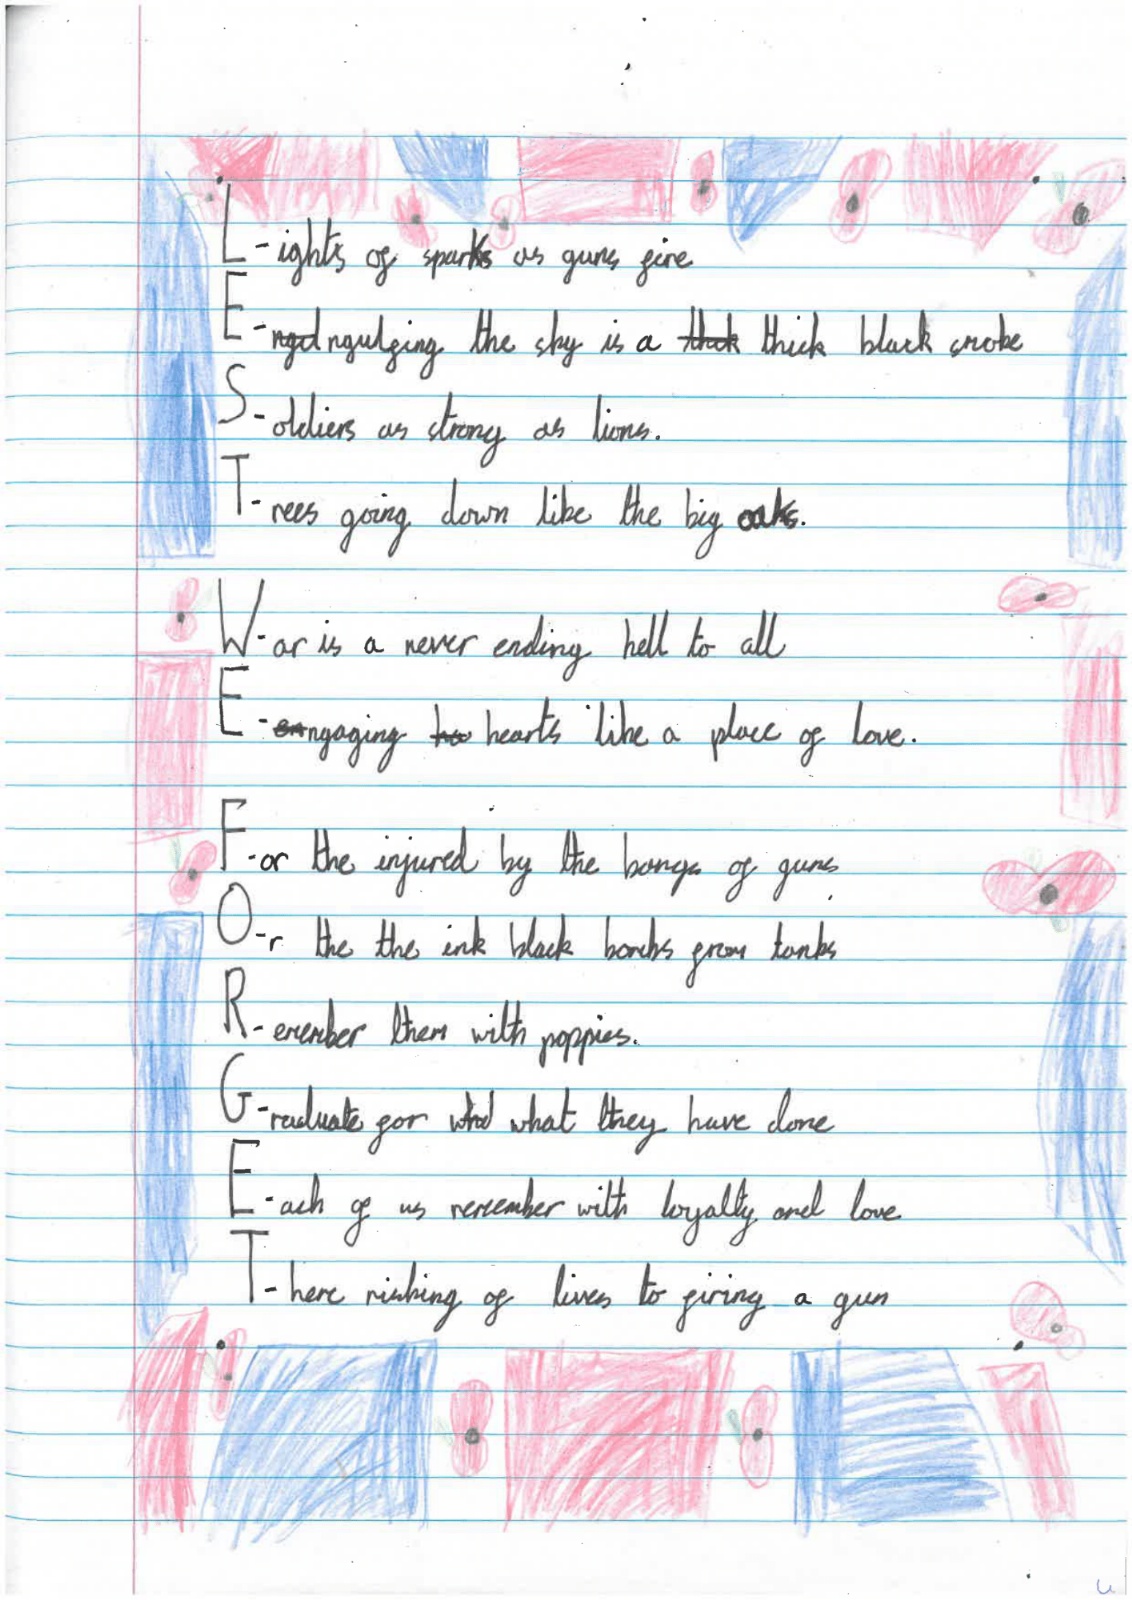 L-ights of sparks as guns fire
E-ngulfing the sky is a thick black smoke
S-oldiers as strong as lions.
T-rees going down like the big oaks.
W-ar is a never ending hell to all
E-ngaging hearts like a place of love.
F-or the injured by the bangs of guns
O-r the the ink black bombs from tanks
R-emember them with poppies.
G-raduate for what they have done
E-ach of us remember with loyalty and love
T-here risking of lives to firing a gun